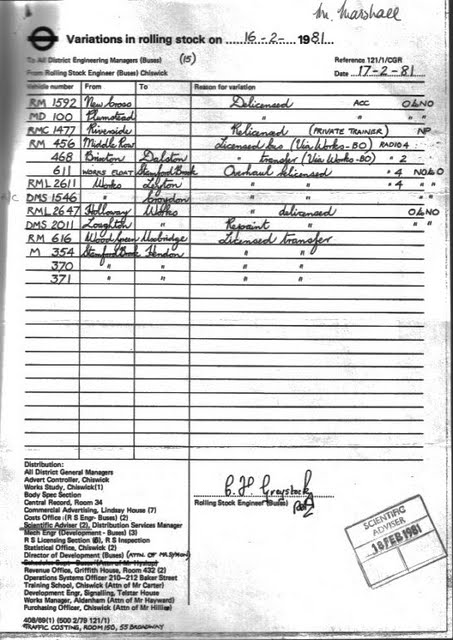 M. Marshall
Variations in rolling stock on 16-2- 1981.
To All District Engineering Managers (Buses) (15) Reference 121/1/CGR
From Rolling Stock Engineer (Buses) Chiswick Date 17-2-81
Vehicle number From To Reason for variation
RM 1592 New Cross Delicensed ACC O L NO
MD 100 Plumstead " " "
RMC 1477 Riverside Relicensed (PRIVATE TRAINER) NP
RM 456 Middle Row Licensed bus (Via Works-BO) RADIO 4
468 Brixton Dalston " transfer (Via Works-BO) " 2
611 WORKS FLOAT Stamford Brook Overhaul relicensed " 4 NO L O
RML 2611 Works Leyton " " " 4 " "
DMS 1546 " Croydon " " " "
RML 2647 Holloway Works " delicensed O L NO
DMS 2011 Loughton " Repaint " " "
RM 616 Wood Green Uxbridge Licensed transfer
M 354 Stamford Brook Hendon " "
370 " " " "
371 " " " "
Distribution:
All District General Managers
Advert Controller, Chiswick
Works Study, Chiswick(1)
Body Spec Section
Central Record, Room 34
Commercial Advertising, Lindsey House (7)
Costs Office :(R S Engr- Buses) (2)
Scientific Adviser (2), Distribution Services Manager
Mech Engr (Development - Buses) (3)
R S Licensing Section (6), R S Inspection
Statistical Office, Chiswick (2)
Director of Development (Buses)
Schedules Dept - Buses (Attn of Mr Hyslop)
Revenue Office, Griffith House, Room 432 (2)
Operations Systems Officer 210-212 Baker Street
Training School, Chiswick (Attn of Mr Carter)
Development Engr, Signalling, Telstar House
Works Manager, Aldenham (Attn of Mr Hayward)
Purchasing Officer, Chiswick (Attn of Mr Hillier)
408/89(1) (500 2/79 121/1)
TRAFFIC COSTING, ROOM 150, 55 BROADWAY
Rolling Stock Engineer (Buses)
SCIENTIFIC
ADVISER
18 FEB 1981